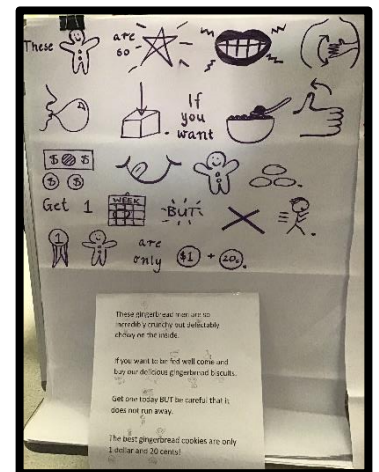 These are so
If you want
$ $
$ $
Get 1 WEEK BUT
1 are only $1 + 20c.
These gingerbread men are so
incredibly crunchy but delectably
chewy on the inside.
If you want to be fed well come and
buy our delicious gingerbread biscuits.
Get one today BUT be careful that it
does not run away.
The best gingerbread cookies are only
1 dollar and 20 cents!